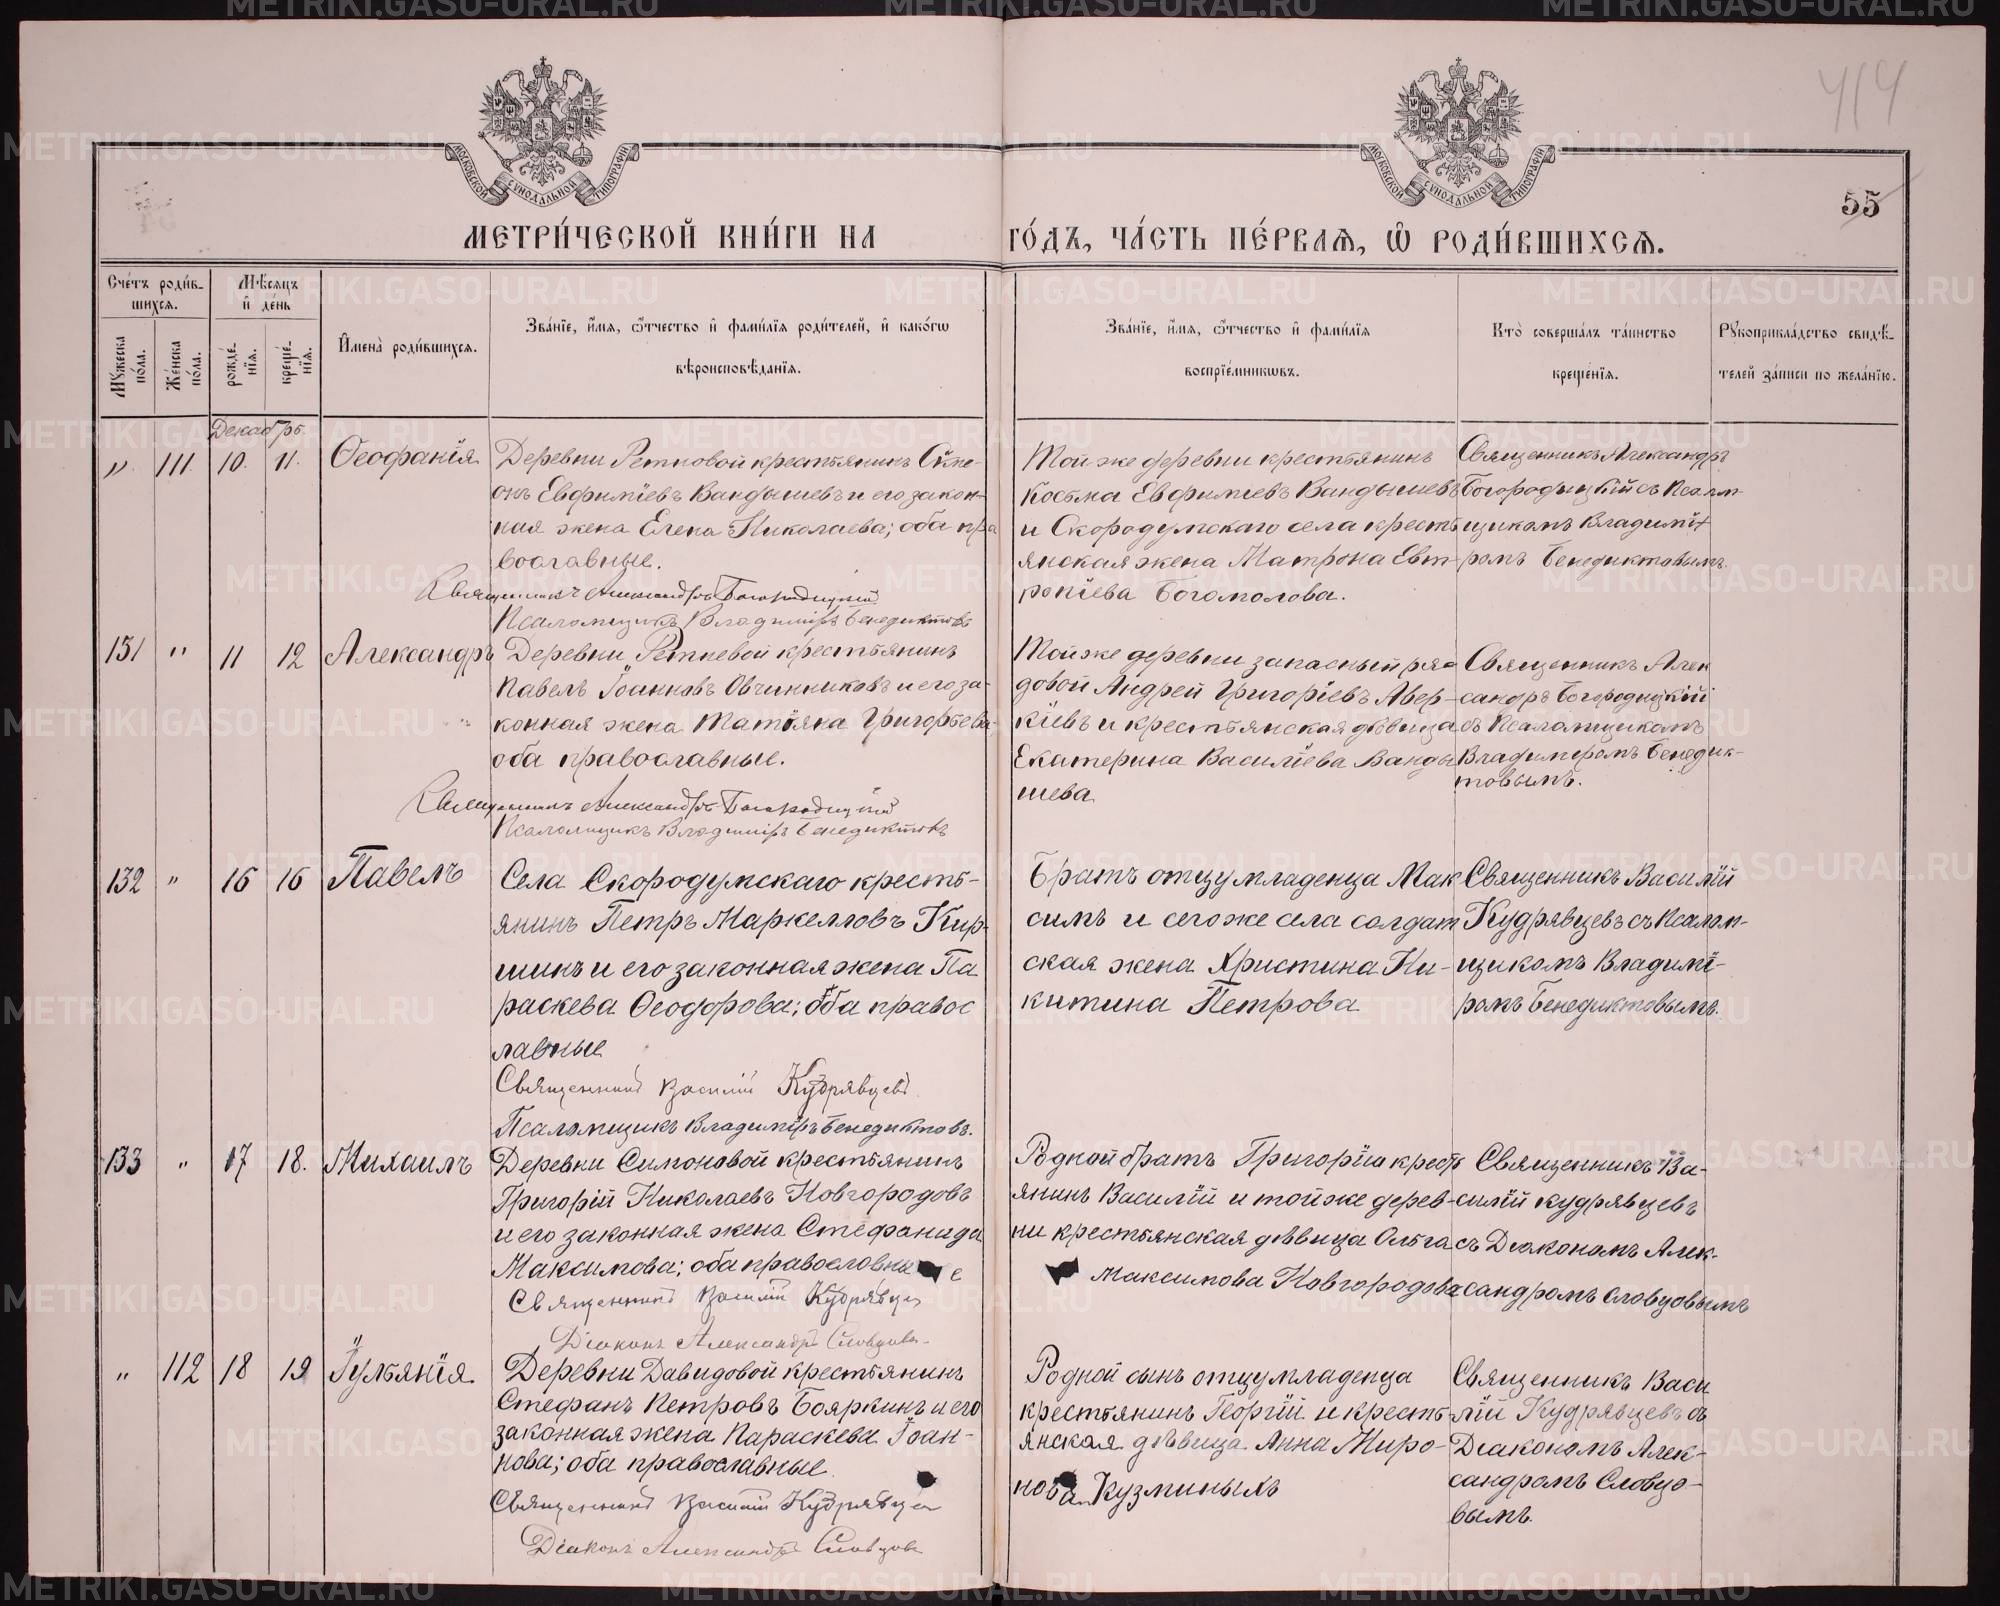 414
55
МОСКОВСКОЙ СѴНОДАЛЬНОЙ ТИПОГРАФІИ
МОСКОВСКОЙ СѴНОДАЛЬНОЙ ТИПОГРАФІИ
МЕТРИ́ЧЕСКОЙ КНИ́ГИ НА
ГО́ДЪ, ЧА́СТЬ ПЕ́РВАѦ, Ѡ҆ РОДИ́ВШИХСѦ.
Сче́тъ роди́в-
шихсѧ.
Мѣ́сѧцъ
и҆ де́нь
Мꙋ́жеска по́ла.
Же́нска по́ла.
рожде́-
нїѧ.
креще́-
нїѧ.
И҆мена̀ роди́вшихсѧ.
Зва́нїе, и҆́мѧ, ѻ҆́тчество и҆ фами́лїѧ роди́телей, и҆ како́гѡ
вѣроисповѣ́данїѧ.
Зва́нїе, и҆́мѧ, ѻ҆́тчество и҆ фами́лїѧ
воспрїе́мникѡвъ.
Кто̀ соверша́лъ та́инство
креще́нїѧ.
Рꙋкоприкла́дство свидѣ́-
телей за́писи по жела́нїю.
Декабрь.
" 111 10. 11. Ѳеофанія
Деревни Ретновой крестьянинъ Симе-
онъ Евфиміевъ Вандышевъ и его закон-
ная жена Елена Николаева; оба пра
вославные.
Священникъ Александръ Богородицкій
Псаломщикъ Владиміръ Бенедиктовъ
Той же деревни крестьянинъ
Косьма Евфиміевъ Вандышевъ
и Скородумскаго села кресть
янская жена Матрона Евт-
ропіева Богомолова.
Священникъ Александръ
Богородицкій съ Псалом-
щикомъ Владимі
ромъ Бенедиктовымъ.
131 " 11 12 Александръ
Деревни Ретневой крестьянинъ
Павелъ Іоанновъ Овчинниковъ и его за-
конная жена Татіяна Григорьева
оба православные.
Священникъ Александръ Богородицкій
Псаломщикъ Владиміръ Бенедиктовъ
Той же деревни запасный ря-
довой Андрей Григоріевъ Авер-
кіевъ и крестьянская дѣвица
Екатерина Василіева Ванды
шева
Священникъ Алек
сандръ Богородицкій
съ Псаломщикомъ
Владиміромъ Бенедик-
товымъ.
132 " 16 16 Павелъ
Села Скородумскаго кресть-
янинъ Петръ Маркелловъ Кир-
шинъ и его законная жена Па
раскева Ѳеодорова; оба правос
лавные
Священникъ Василій Кудрявцевъ
Псаломщикъ Владиміръ Бенедиктовъ.
Братъ отцу младенца Мак
симъ и сего же села солдат
ская жена Христина Ни-
китина Петрова
Священникъ Василій
Кудрявцевъ съ Псалом-
щикомъ Владимі-
ромъ Бенедиктовымъ.
133 " 17 18. Михаилъ
Деревни Симоновой крестьянинъ
Григорій Николаевъ Новгородовъ
и его законная жена Стефанида
Максимова; оба православные
Священникъ Василій Кудрявцев
Діаконъ Александръ Словцовъ
Родной братъ Григорію кресть
янинъ Василій и той же дерев-
ни крестьянская дѣвица Ольга
Максимова Новгородова
Священникъ Ва-
силій Кудрявцевъ
съ Діакономъ Алек-
сандромъ Словцовымъ
" 112 18 19 Іульянія
Деревни Давидовой крестьянинъ
Стефанъ Петровъ Бояркинъ и его
законная жена Параскева Іоан-
нова; оба православные
Священникъ Василій Кудрявцев
Діаконъ Александръ Словцовъ
Родной сынъ отцу младенца
крестьянинъ Георгій и кресть-
янская дѣвица Анна Миро-
нова Кузминыхъ
Священникъ Васи
лій Кудрявцевъ съ
Діакономъ Алек-
сандромъ Словцо-
вымъ.
METRIKI.GASO-URAL.RU